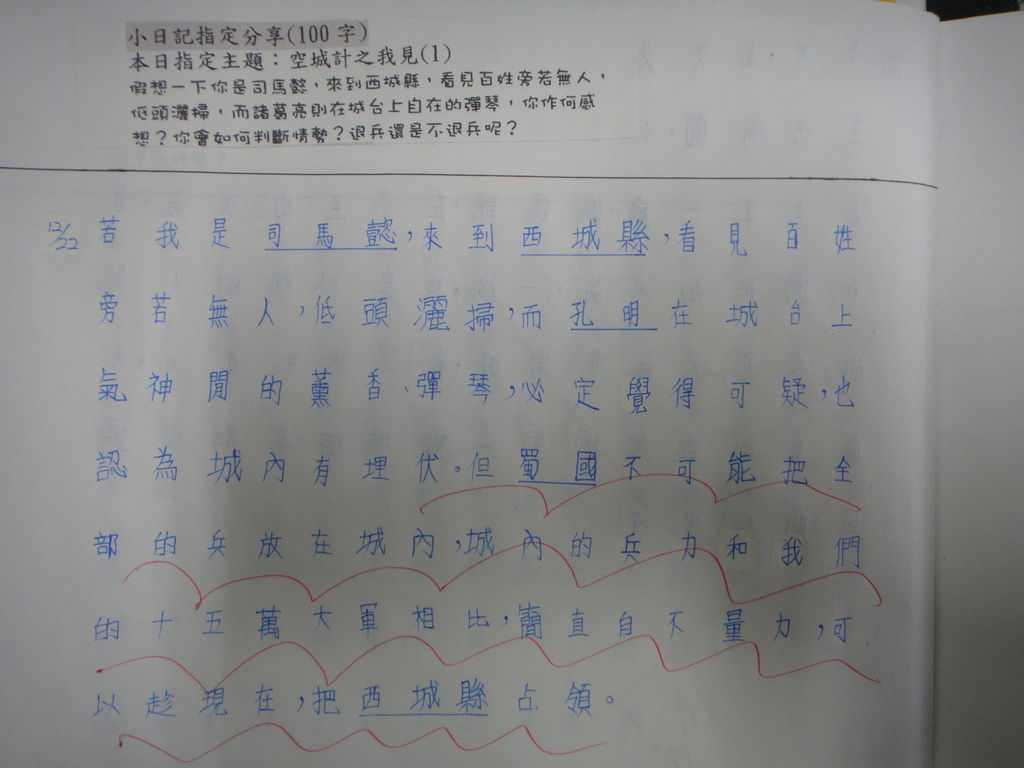 小日記指定分享(100字)
本日指定主題：空城計之我見(1)
假想一下你是司馬懿，來到西城縣，看見百姓旁若無人，
低頭灑掃，而諸葛亮則在城台上自在的彈琴，你作何感
想？你會如何判斷情勢？退兵還是不退兵呢？
12/22 若我是司馬懿，來到西城縣，看見百姓
旁若無人，低頭灑掃，而孔明在城台上
氣神閒的薰香、彈琴，必定覺得可疑，也
認為城內有埋伏。但蜀國不可能把全
部的兵放在城內，城內的兵力和我們
的十五萬大軍相比，簡直自不量力，可
以趁現在，把西城縣占領。